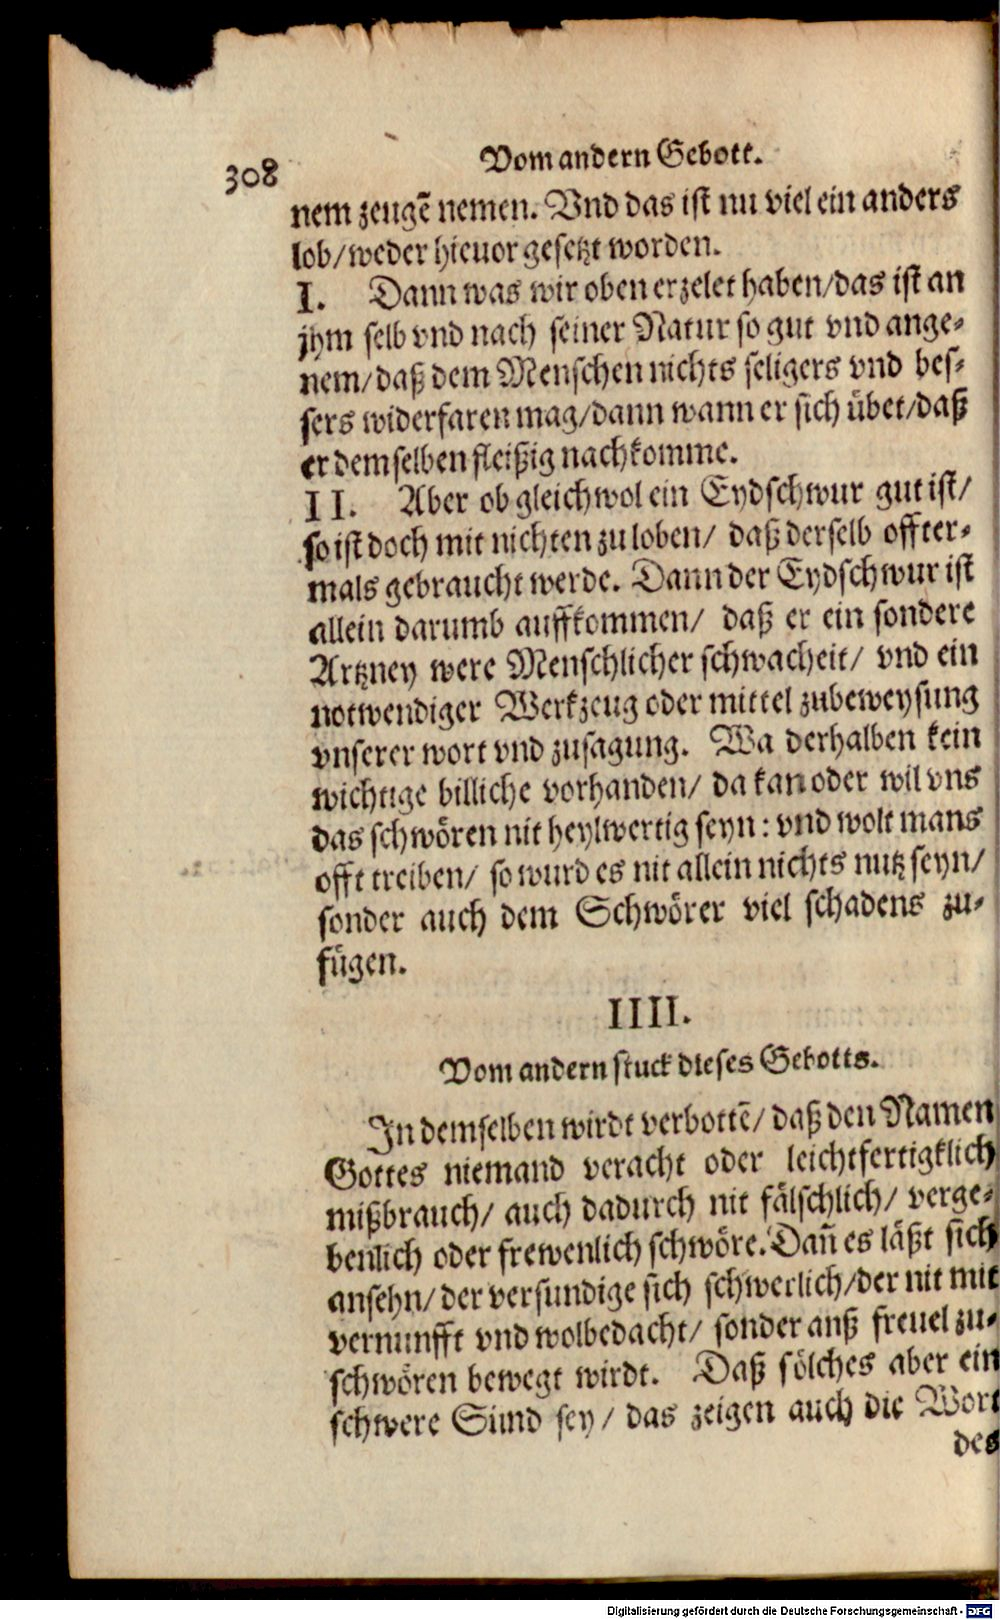 308
Vom andern Gebott.
nem zeugē nemen. Vnd das ist nu viel ein anders
lob/ weder hieuor gesetzt worden.
I. Dann was wir oben erzelet haben/ das ist an
jhm selb vnd nach seiner Natur so gut vnd ange-
nem/ daß dem Menschen nichts seligers vnd bes-
sers widerfaren mag/ dann wann er sich übet/ daß
er demselben fleißig nachkomme.
II. Aber ob gleichwol ein Eydschwur gut ist/
so ist doch mit nichten zu loben/ daß derselb offter-
mals gebraucht werde. Dann der Eydschwur ist
allein darumb auffkommen/ daß er ein sondere
Artzney were Menschlicher schwacheit/ vnd ein
notwendiger Werkzeug oder mittel zubeweysung
vnserer wort vnd zusagung. Wa derhalben kein
wichtige billiche vorhanden/ da kan oder wil vns
das schwören nit heylwertig seyn: vnd wolt mans
offt treiben/ so wurd es nit allein nichts nutz seyn/
sonder auch dem Schwörer viel schadens zu-
fügen.
IIII.
Vom andern stuck dieses Gebotts.
In demselben wirdt verbottē/ daß den Namen
Gottes niemand veracht oder leichtfertigklich
mißbrauch/ auch dadurch nit fälschlich/ verge-
benlich oder frewenlich schwöre. Dañ es läßt sich
ansehn/ der versundige sich schwerlich/ der nit mit
vernunfft vnd wolbedacht/ sonder auß freuel zu-
schwören bewegt wirdt. Daß sölches aber ein
schwere Sünd sey/ das zeigen auch die Wort
des
Digitalisierung gefördert durch die Deutsche Forschungsgemeinschaft - DFG